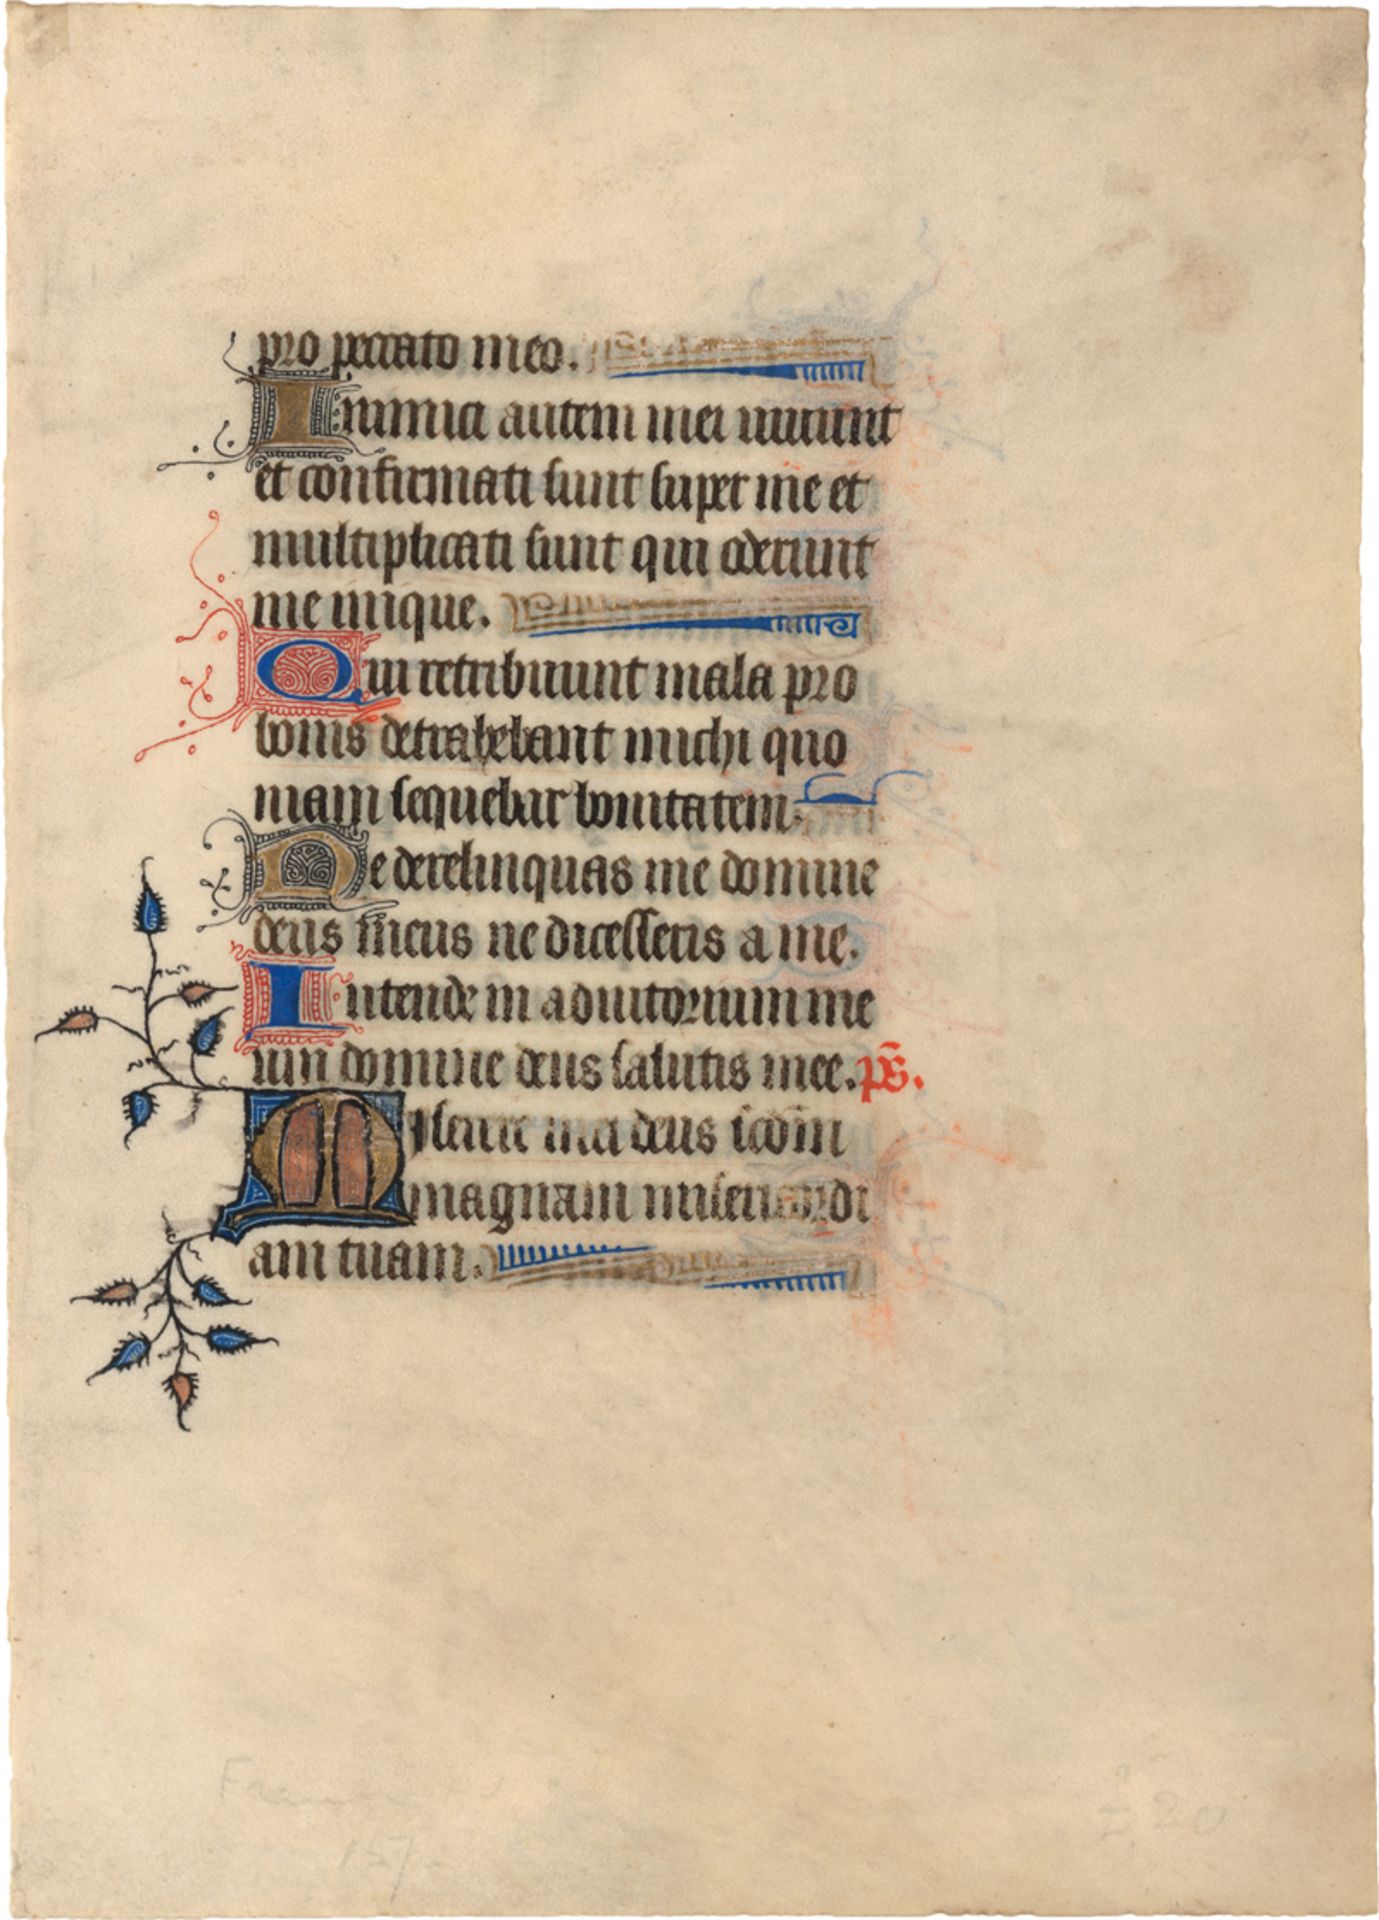 pro peccato meo.
Inimici autem mei uiuunt
et confirmati sunt super me et
multiplicati sunt qui oderunt
me inique.
Qui retribuunt mala pro
bonis detrahebant michi quo
niam sequebar bonitatem.
Ne derelinquas me domine
deus meus ne discesseris a me.
Intende in adiutorium me
um domine deus salutis mee. ps̄.
Miserere mei deus scd̄m
magnam misericordi
am tuam.